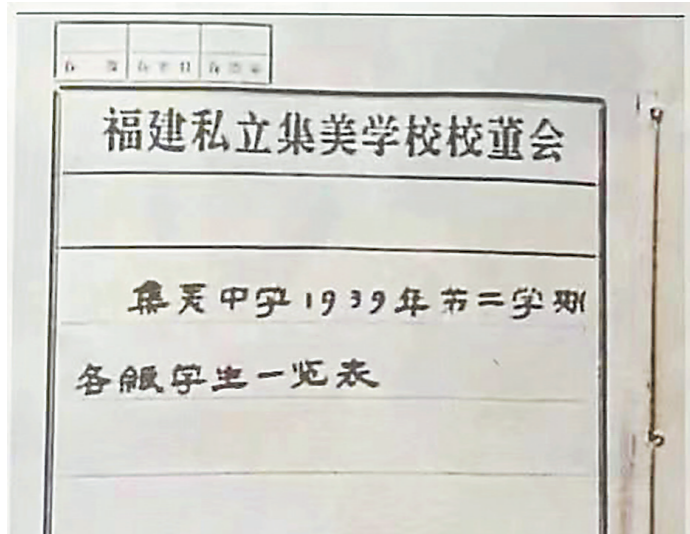 福建私立集美学校校董会
集美中学1939年第二学期
各级学生一览表